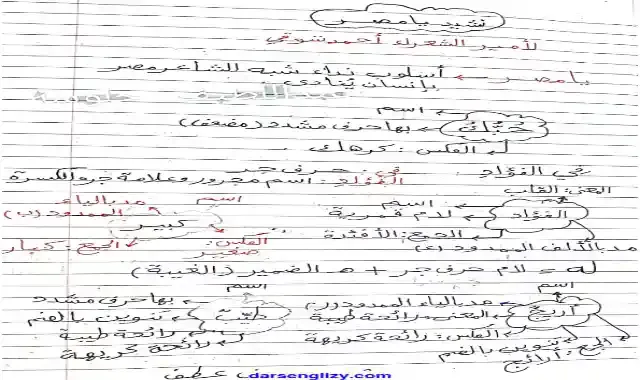 نشيد يا مصر
لأمير الشعراء أحمد شوقي
يا مصر ← أسلوب نداء شبه الشاعر مصر
بإنسان يُنادى
اسم
حُبُّك ← بها حرف مشدد (مضعف)
العكس: كرهك
في الفؤاد في: حرف جر
المعنى: القلب الفؤاد: اسم مجرور وعلامة جره الكسرة
اسم اسم مد بالياء
الفؤاد لام قمرية كبير الممدود (ب)
الجمع: الأفئدة العكس: صغير الجمع: كبار
مد بالألف الممدود (ء)
له = لام حرف جر + هـ الضمير (الغيبة)
اسم اسم
أريج مد بالياء الممدود (ر) طيبٌ بها حرف مشدد
المعنى: رائحة طيبة تنوين بالضم
العكس: رائحة كريهة رائحة طيبة
تنوين بالضم رائحة كريهة
الجمع: أرائج
عطف
darsenglizy.com